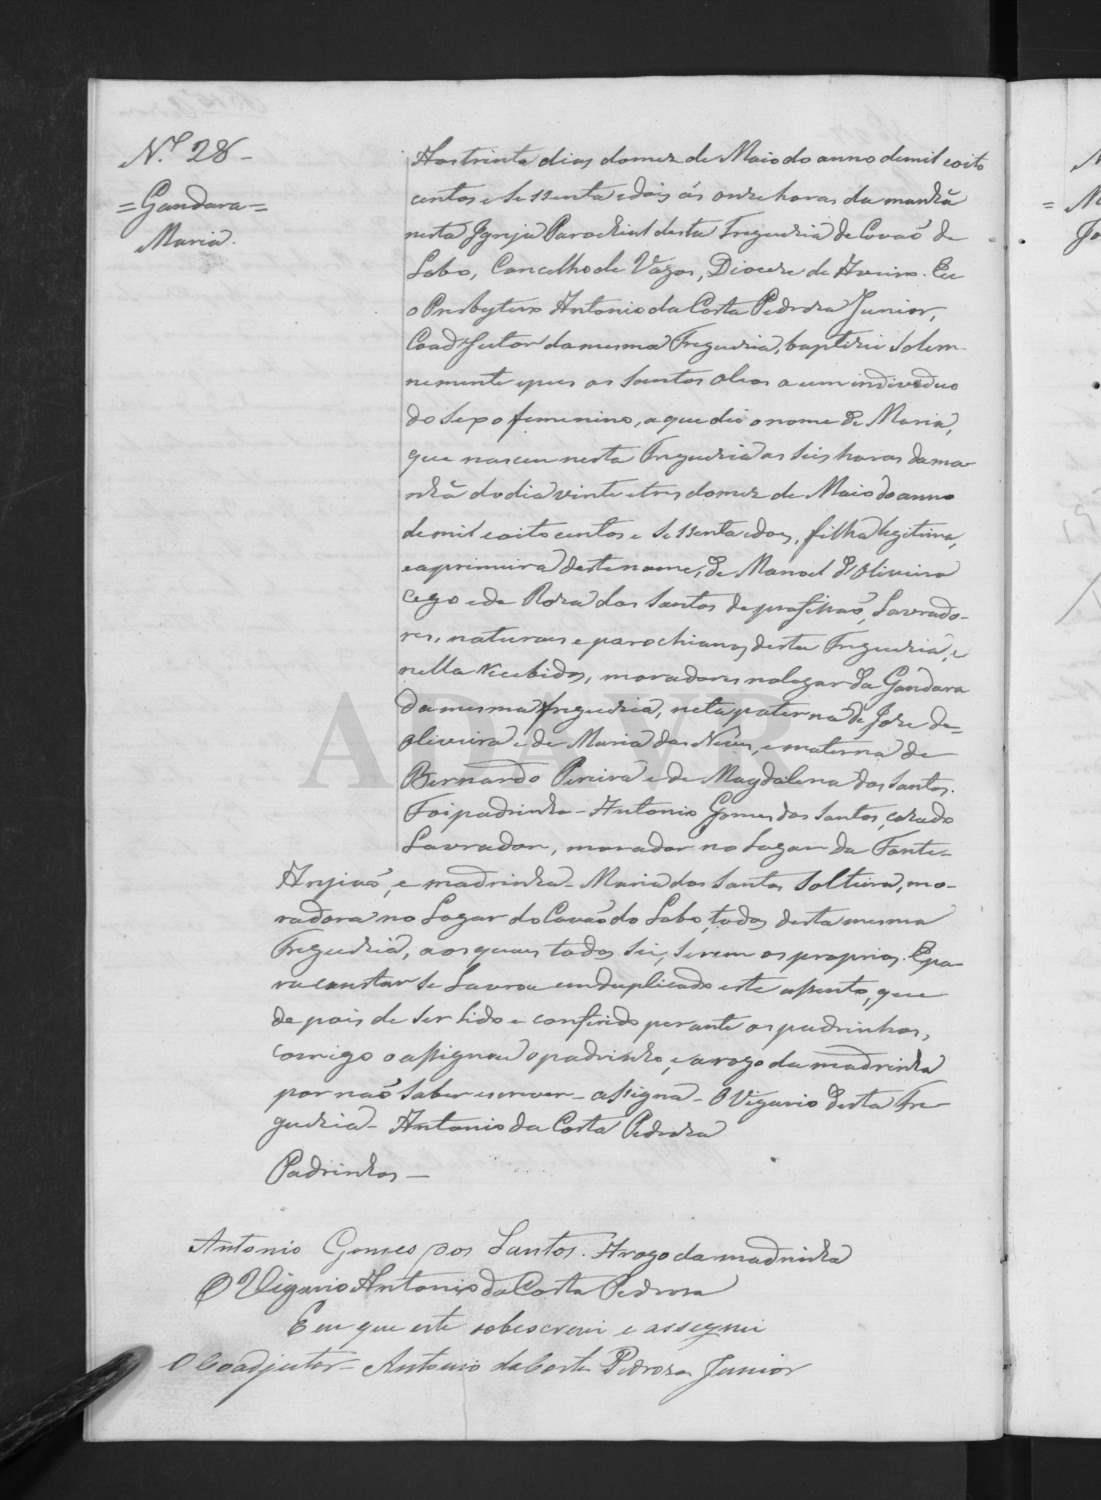 N.º 28 -
= Gandara =
Maria.
Aos trinta dias do mez de Maio do anno de mil e oito
centos e sessenta e dois ás onze horas da manhã
nesta Igreja Parochial desta Freguezia de Covaõ de
Lobo, Concelho de Vagos, Diocese de Aveiro. Eu
o Presbytero Antonio da Costa Pedroza Junior,
Coadjuctor da mesma Freguezia, baptizei solem-
nemente e pus os santos oleos a um individuo
do sexo femenino, a que dei o nome de Maria,
que nasceu nesta Freguezia as seis horas da ma-
nhã do dia vinte e tres do mez de Maio do anno
de mil e oito centos e sessenta e dois, filha legitima,
e a primeira deste nome, de Manoel d'Oliveira
Cego e de Roza dos Santos de profissaõ, Lavrado-
res, naturaes e parochianos desta Freguezia, e
nella recebidos, moradores no logar da Gandara
da mesma freguezia, neta paterna de Joze de=
Oliveira e de Maria das Neves, e materna de
Bernardo Pereira e de Magdalena dos Santos.
Foi padrinho - Antonio Gomes dos Santos, cazado
Lavrador, morador no Lugar da Fonte-
Anjiaõ, e madrinha - Maria dos Santos Solteira, mo-
radora no Logar do Covaõ do Lobo, todos desta mesma
Freguezia, aos quaes todos sei, serem os proprios. E pa-
ra constar se Lavrou em duplicado este assento, que
depois de ser Lido e conferido perante os padrinhos,
comigo o assignou o padrinho, e a rogo da madrinha
por naõ saber escrever - assigna - O Vigario desta Fre-
guezia - Antonio da Costa Pedroza
Padrinhos -
Antonio Gomes dos Santos. A rogo da madrinha
O Vigario Antonio da Costa Pedrosa
E eu que este sobescrevi e assegnei
O Coadjutor - Antonio da Costa Pedroza Junior
ADAVR